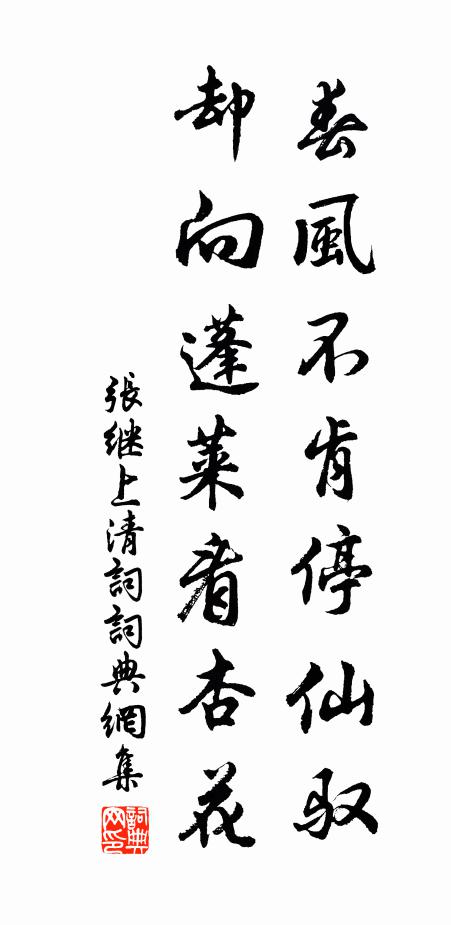 春風不肯停仙馭
却向蓬萊看杏花
張继上清詞詞典網集
詞典網印